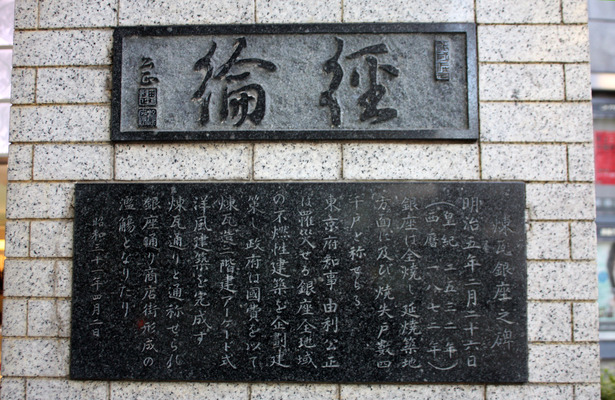 經綸
公正
煉瓦銀座之碑
明治五年二月二十六日
(皇紀二五三二年)
(西暦一八七二年)
銀座は全焼し延焼築地
方面に及び焼失戸数四
千戸と称せらる
東京府知事 由利公正
は罹災せる銀座全地域
の不燃性建築を企劃建
策し政府は國費を以て
煉瓦造二階建アーケード式
洋風建築を完成す
煉瓦通りと通称せられ
銀座鋪り商店街形成の
濫觴となりたり
昭和三十一年四月二日